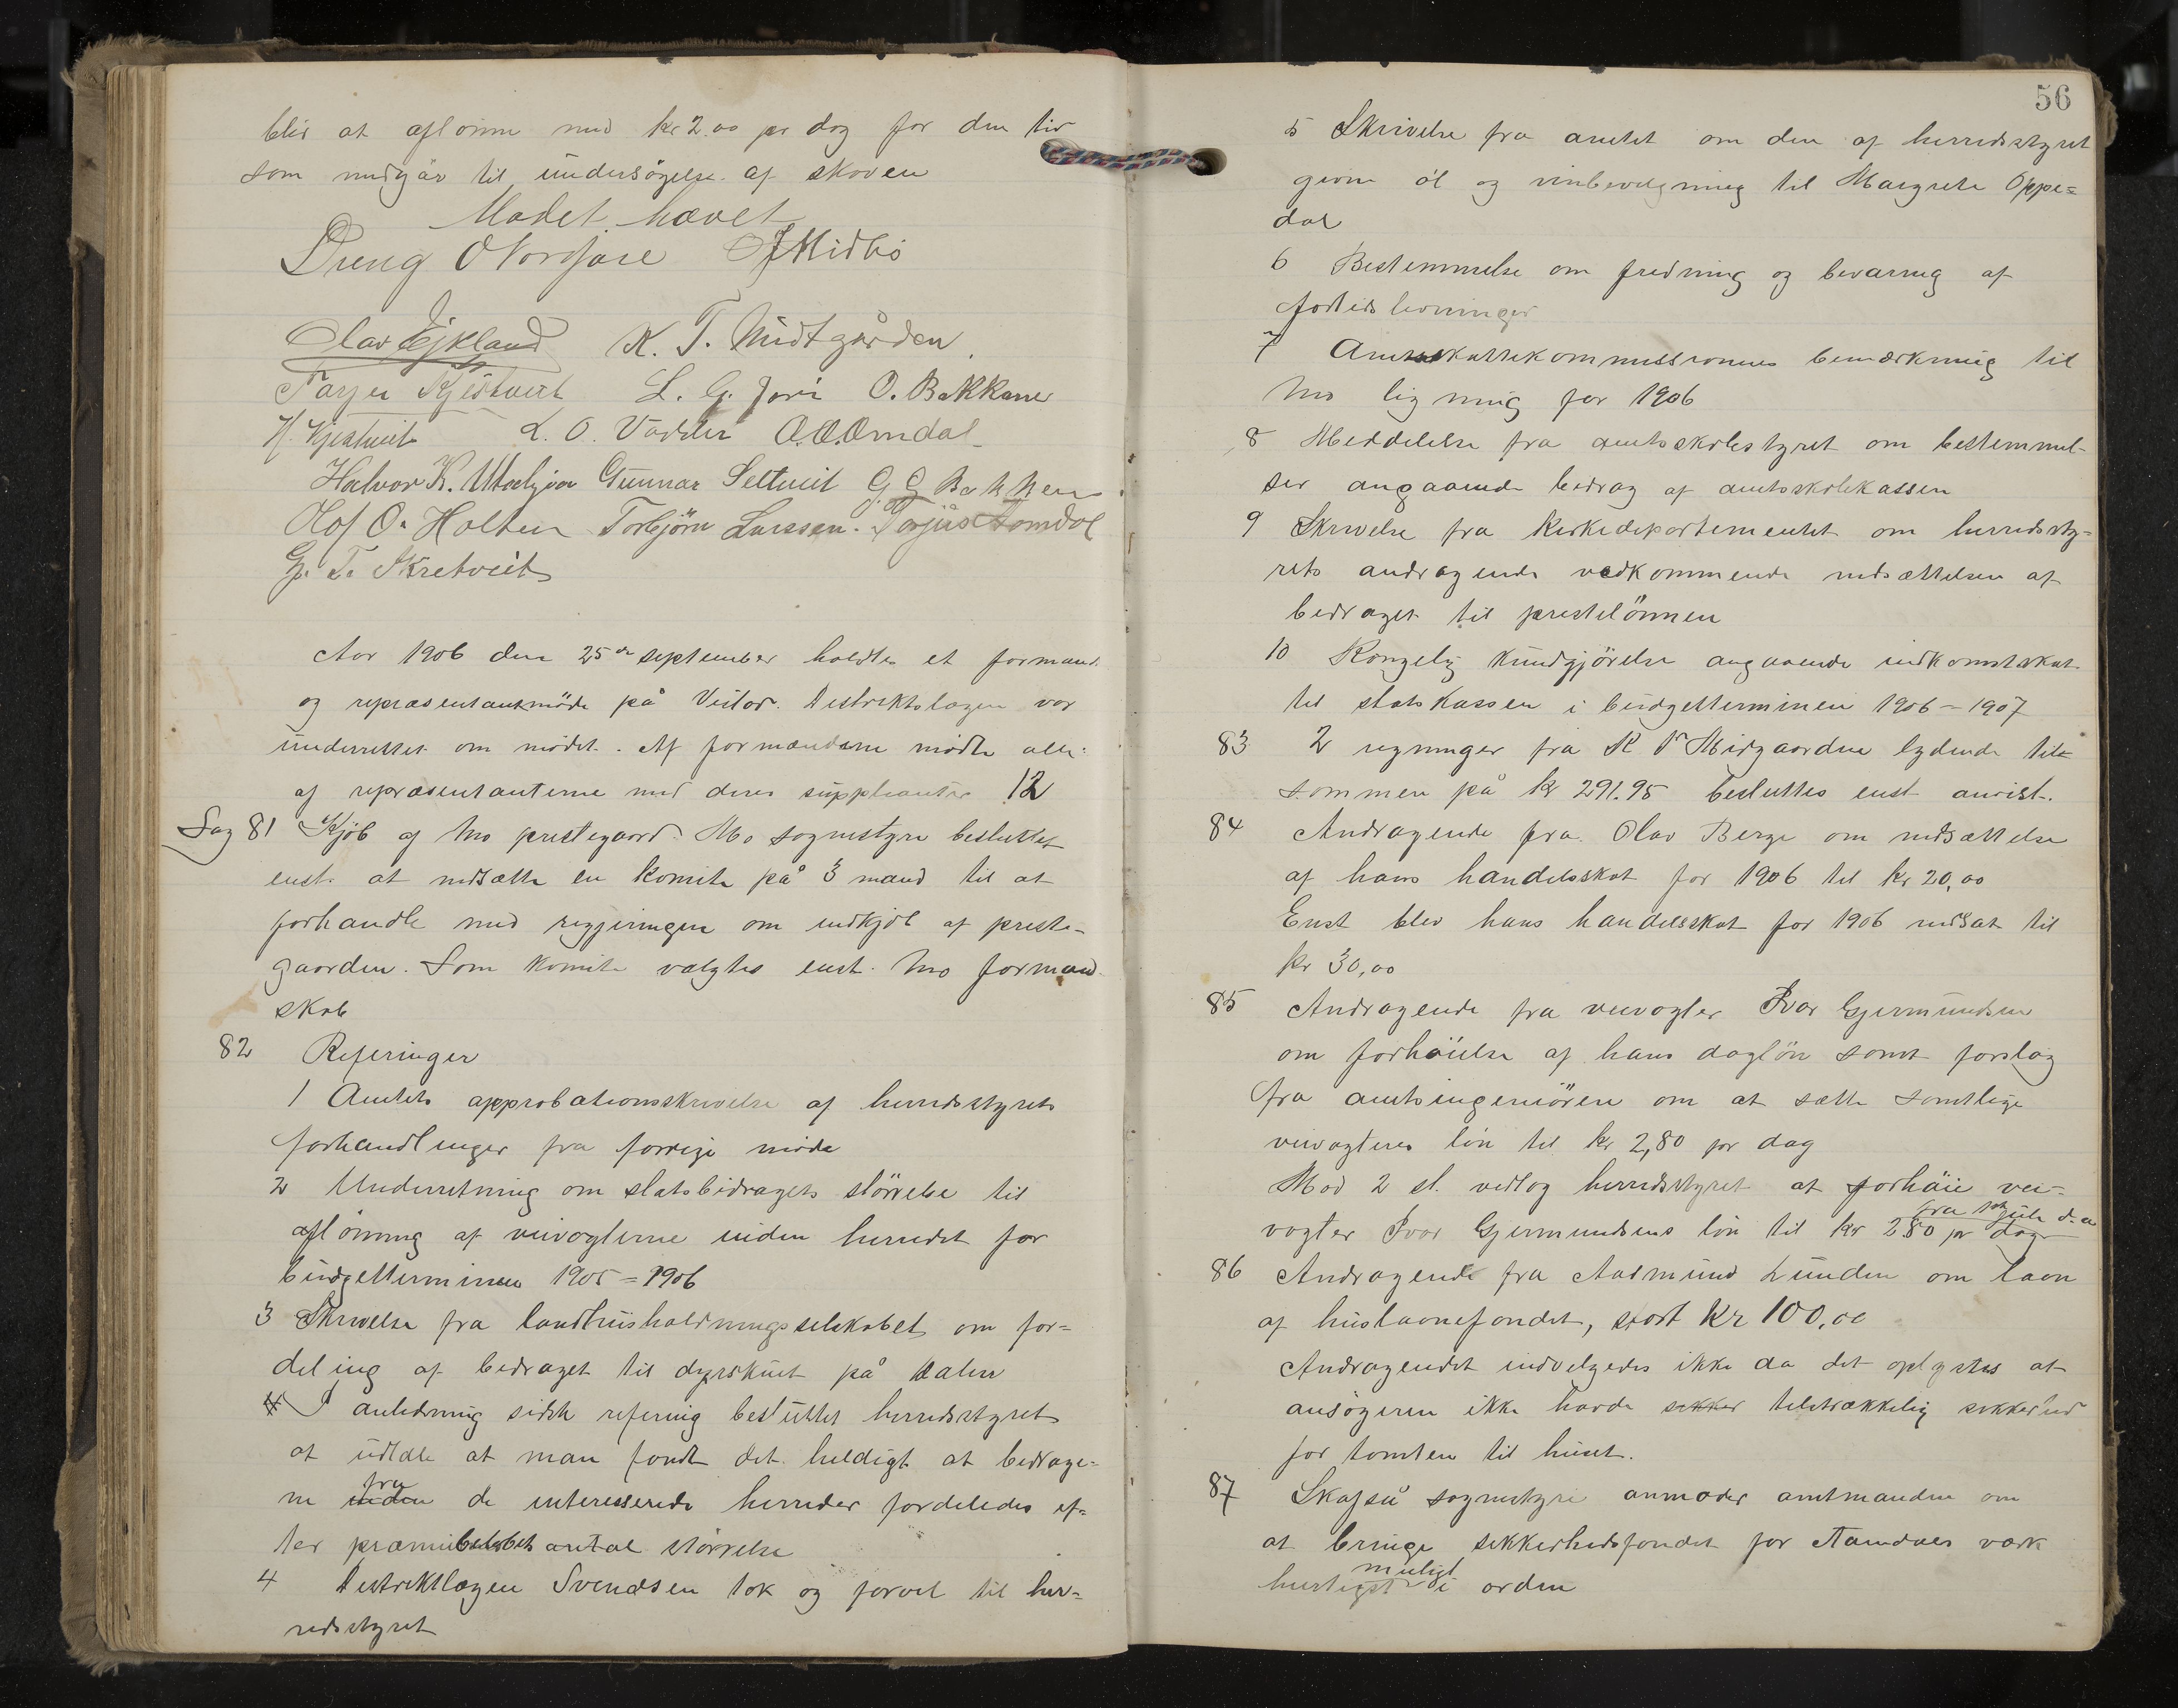 blir at aflønne med kr 2.00 pr dag for den tid
som medgår til undersøgelse af skoven
Mødet hævet
Dreng O Nordjore J Midbø
Olav Ejkland K. T. Midtgården
Tarjei Kjestveit L. G. Jore O. Bakkane
H. Kjestveit L. O. Vadder O.O. Omdal
Halvor K. Utabjaa Gunnar Seltveit G G Bakken
Olof O. Holten Torbjörn Larssen. Torjus Somdal
G. T. Skretveit
Aar 1906 den 25de september holdtes et formand.
og repræsentantmöde på Veslad. Distriktslægen var
underrettet om mødet. Af formændene mødte alle:
af repræsentanterne med deres suppleanter 12
Sag 81 Kjöb af Mo prestegaard. Mo sognestyre besluttet
enst. at nedsætte en komite på 3 mand til at
forhandle med regjeringen om indkjöb af preste-
gaarden. Som komite valgtes enst. Mo formand
skab
82 Referinger
1 Amtets approbationsskrivelse af herredsstyrets
forhandlinger fra forrige møde
2 Underretning om statsbidragets störrelse til
aflönning af veivogterne inden herredet for
budgetterminen 1905=1906
3 Skrivelse fra landhusholdningsselskabet om for=
deling af bedraget til dyrskuet på Dalen
4 I anledning sidste refering besluttet herredsstyret
at udtale at man fandt det heldigt at bedrage-
fra
ne inden de interesserede herreder fordeledes ef=
ter præmiebeløbets antal störrelse
4 Distriktlægen Svendsen tok og farvel til her=
redsstyret
56
5 Skrivelse fra amtet om den af herredsstyret
givne øl og vinbevilgning til Margrete Oppe=
dal
6 Bestemmelse om fredning og bevaring af
fortidslevninger
7 Amtsskattekommissionens bemærkning til
Mo ligning for 1906
8 Meddelelse fra amtsskolestyret om bestemmel-
ser angaaende bedrag af amtsskolekassen
9 Skrivelse fra kirkedepartementet om herredssty=
rets andragende vedkommende nedsættelsen af
bedraget til prestelönnen
10 Kongelig kundgjörelse angaaende indkomstskat
til statskassen i budgetterminen 1906-1907
83 2 regninger fra K T Midgaarden lydende til
sammen på kr 291.95 besluttes enst anvist.
84 Andragende fra Olav Berge om nedsættelse
af hans handelsskat for 1906 til kr 20,00
Enst blev hans handelsskat for 1906 nedsat til
kr 30,00
85 Andragende fra veivogter Ivar Gjermundsen
om forhöielse af hans daglön samt forslag
fra amtsingeniören om at sætte samtlige
veivogteres lön til kr 2,80 pr dag
Mod 2 st. vedtog herredsstyret at forhöie vei-
fra 1ste juli d.a
vogter Ivar Gjermundsens lön til kr 2.80 pr dag
86 Andragende fra Aasmund Lunden om laan
af huslaanefondet, stort kr 100,00
Andragendet indvilgedes ikke da det oplystes at
ansögeren ikke havde sikker tilstrækkelig sikkerhed
for tomten til huset.
87 Skafså sognestyre anmoder amtmanden om
at bringe sikkerhedsfondet for Aamdals værk
muligt
hurtigst i orden